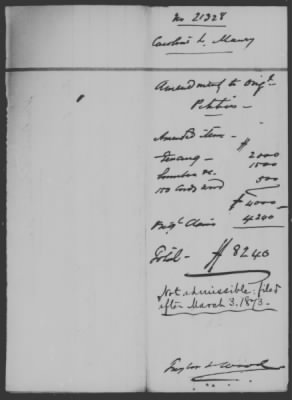 No 21328
Caroline L. Maury
Amendment to Orig.
Petition
Amended item -
Fencing - 2000
Lumber &c. 1500
150 Cords wood 500
$ 4000
Orig. Claim 4240
Total - $ 8240
Not admissible; filed
after March 3. 1873.
Taylor & Wood